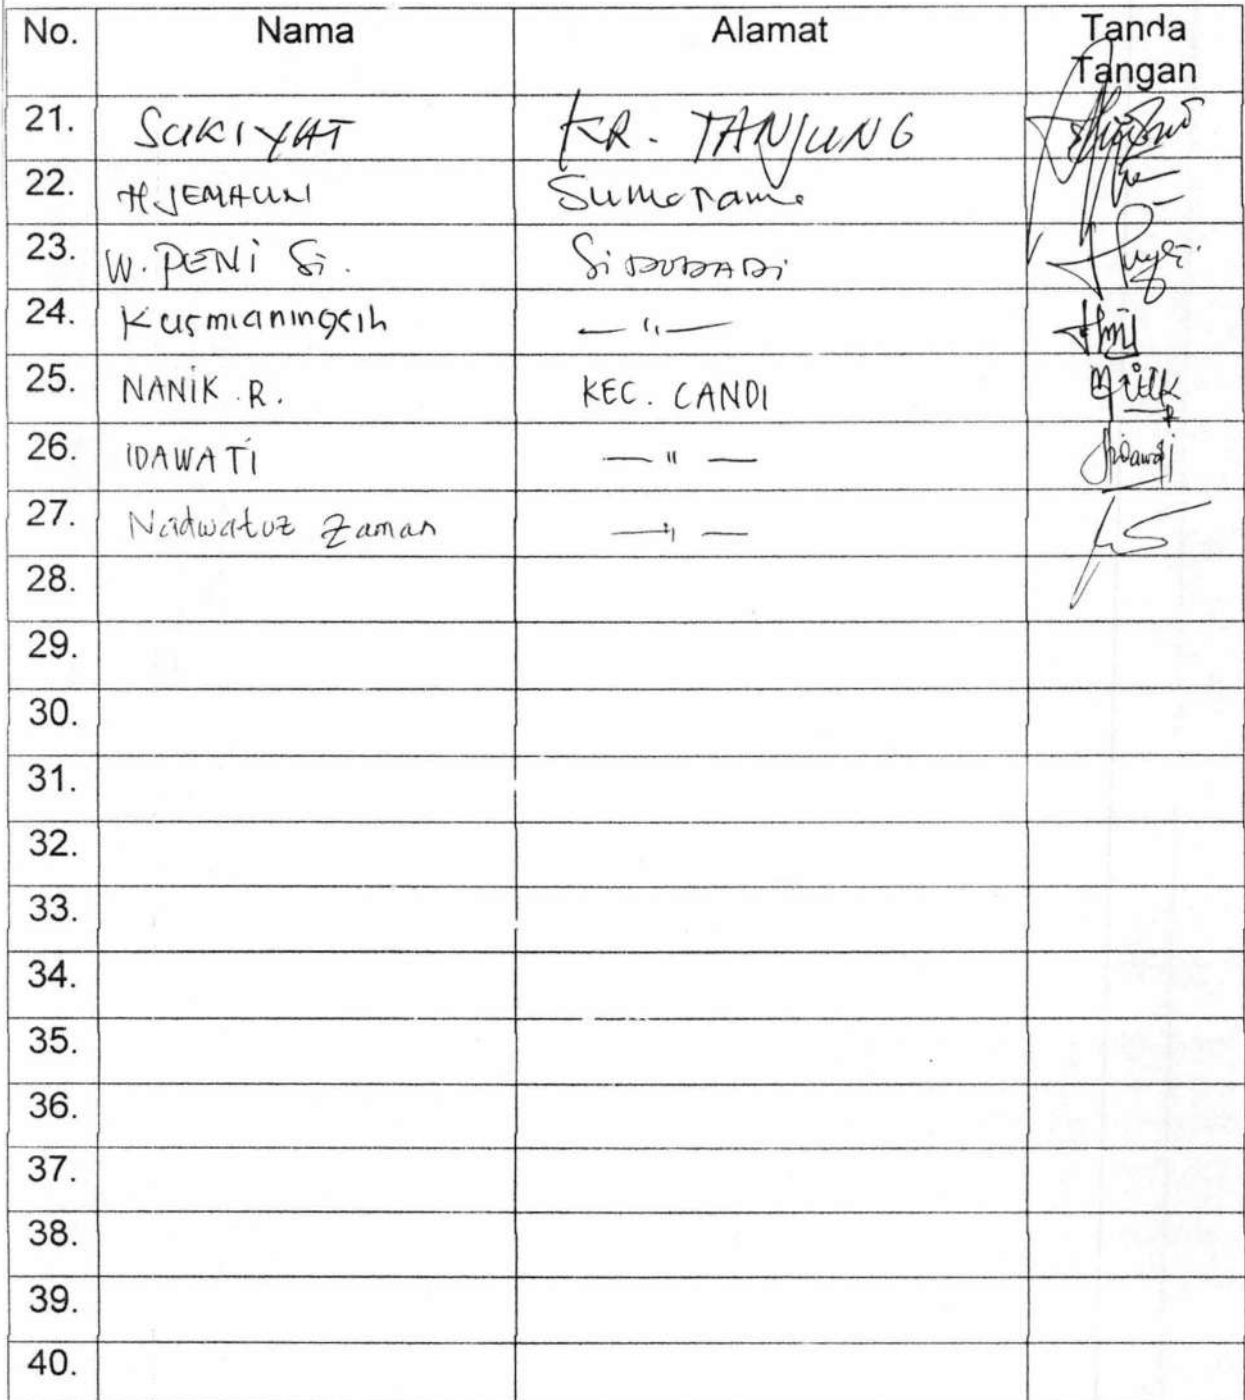 No. Nama Alamat Tanda
Tangan
21. SUKIYAT KR. TANJUNG
22. H JEMAUNI Sumorame
23. W. PENI Si. SiDODADi
24. Kusmianingsih — " —
25. NANIK . R. KEC. CANDI
26. IDAWATI — " —
27. Nadwatuz Zaman — " —
28.
29.
30.
31.
32.
33.
34.
35.
36.
37.
38.
39.
40.